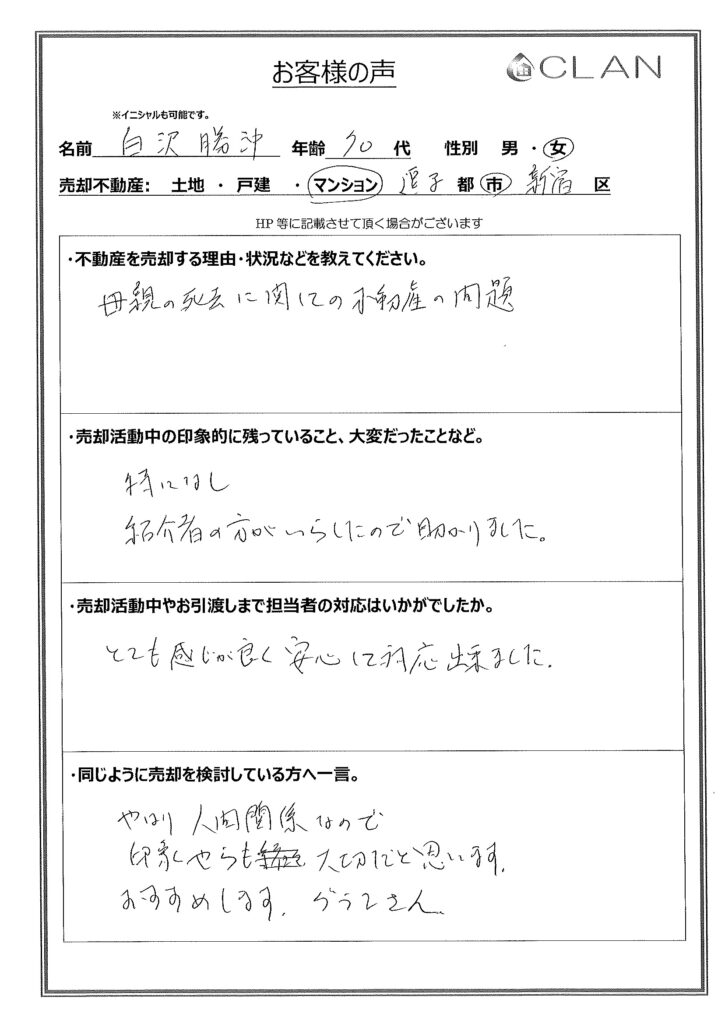 お客様の声
CLAN
※イニシャルも可能です。
名前 白沢勝沖 年齢 70 代 性別 男 ・ 女
売却不動産： 土地 ・ 戸建 ・ マンション 逗子 都 市 新宿 区
HP 等に記載させて頂く場合がございます
・不動産を売却する理由・状況などを教えてください。
母親の死去に関しての不動産の問題
・売却活動中の印象的に残っていること、大変だったことなど。
特になし
紹介者の方がいらしたので助かりました。
・売却活動中やお引渡しまで担当者の対応はいかがでしたか。
とても感じが良く安心して対応出来ました.
・同じように売却を検討している方へ一言。
やはり人間関係なので
印象やらも 大切だと思います.
おすすめします. さん.